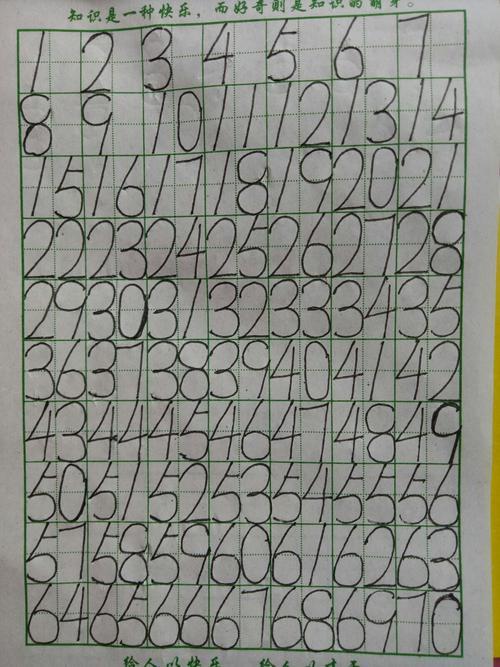 知识是一种快乐，而好奇则是知识的萌芽。
1 2 3 4 5 6 7
8 9 10 11 12 13 14
15 16 17 18 19 20 21
22 23 24 25 26 27 28
29 30 31 32 33 34 35
36 37 38 39 40 41 42
43 44 45 46 47 48 49
50 51 52 53 54 55 56
57 58 59 60 61 62 63
64 65 66 67 68 69 70
给人以快乐